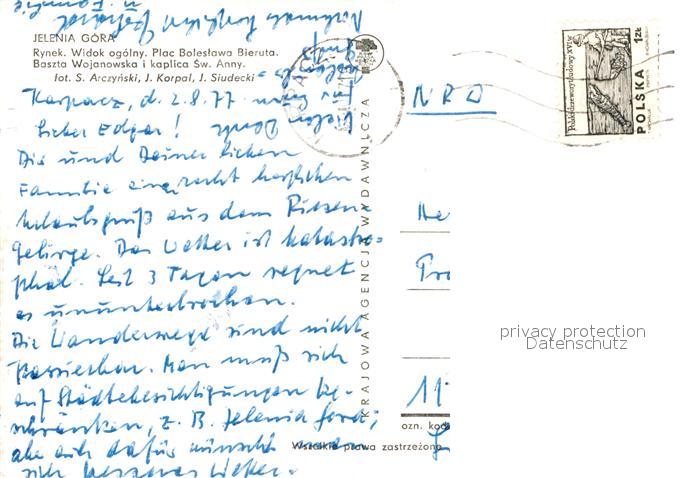 JELENIA GÓRA
Rynek. Widok ogólny. Plac Bolesława Bieruta.
Baszta Wojanowska i kaplica Św. Anny.
fot. S. Arczyński, J. Korpal, J. Siudecki
Karpacz, d. 2.8.77
Lieber Edgar!
Dir und Deiner lieben
Familie einen recht herzlichen
Urlaubsgruß aus dem Riesen-
gebirge. Das Wetter ist katastro-
phal. Seit 3 Tagen regnet
es ununterbrochen.
Die Wanderwege sind nicht
passierbar. Man muß sich
auf Städtebesichtigungen be-
schränken, z. B. Jelenia Gora;
aber auch dafür wünscht man
sich besseres Wetter.
Vielen Dank für
KRAJOWA AGENCJA WYDAWNICZA
NRD
He
11
ozn. kod
Wszelkie prawa zastrzeżone
POLSKA
1zł
privacy protection
Datenschutz